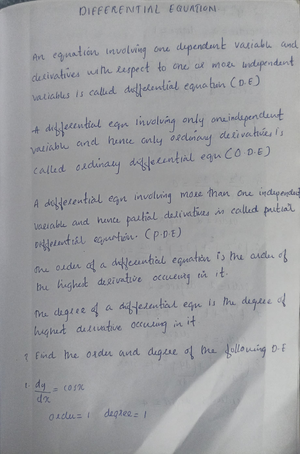 DIFFERENTIAL EQUATION
An equation involving one dependent variable and
derivatives with respect to one or more independent
variables is called differential equation (D.E)
A differential eqn involving only one independent
variable and hence only ordinary derivatives is
called ordinary differential eqn (O.D.E)
A differential eqn involving more than one independent
variable and hence partial derivatives is called partial
differential equation. (P.D.E)
The order of a differential equation is the order of
the highest derivative occuring in it.
The degree of a differential eqn is the degree of
highest derivative occuring in it
? Find the order and degree of the following D.E
1. dy/dx = cosx
order = 1 degree = 1